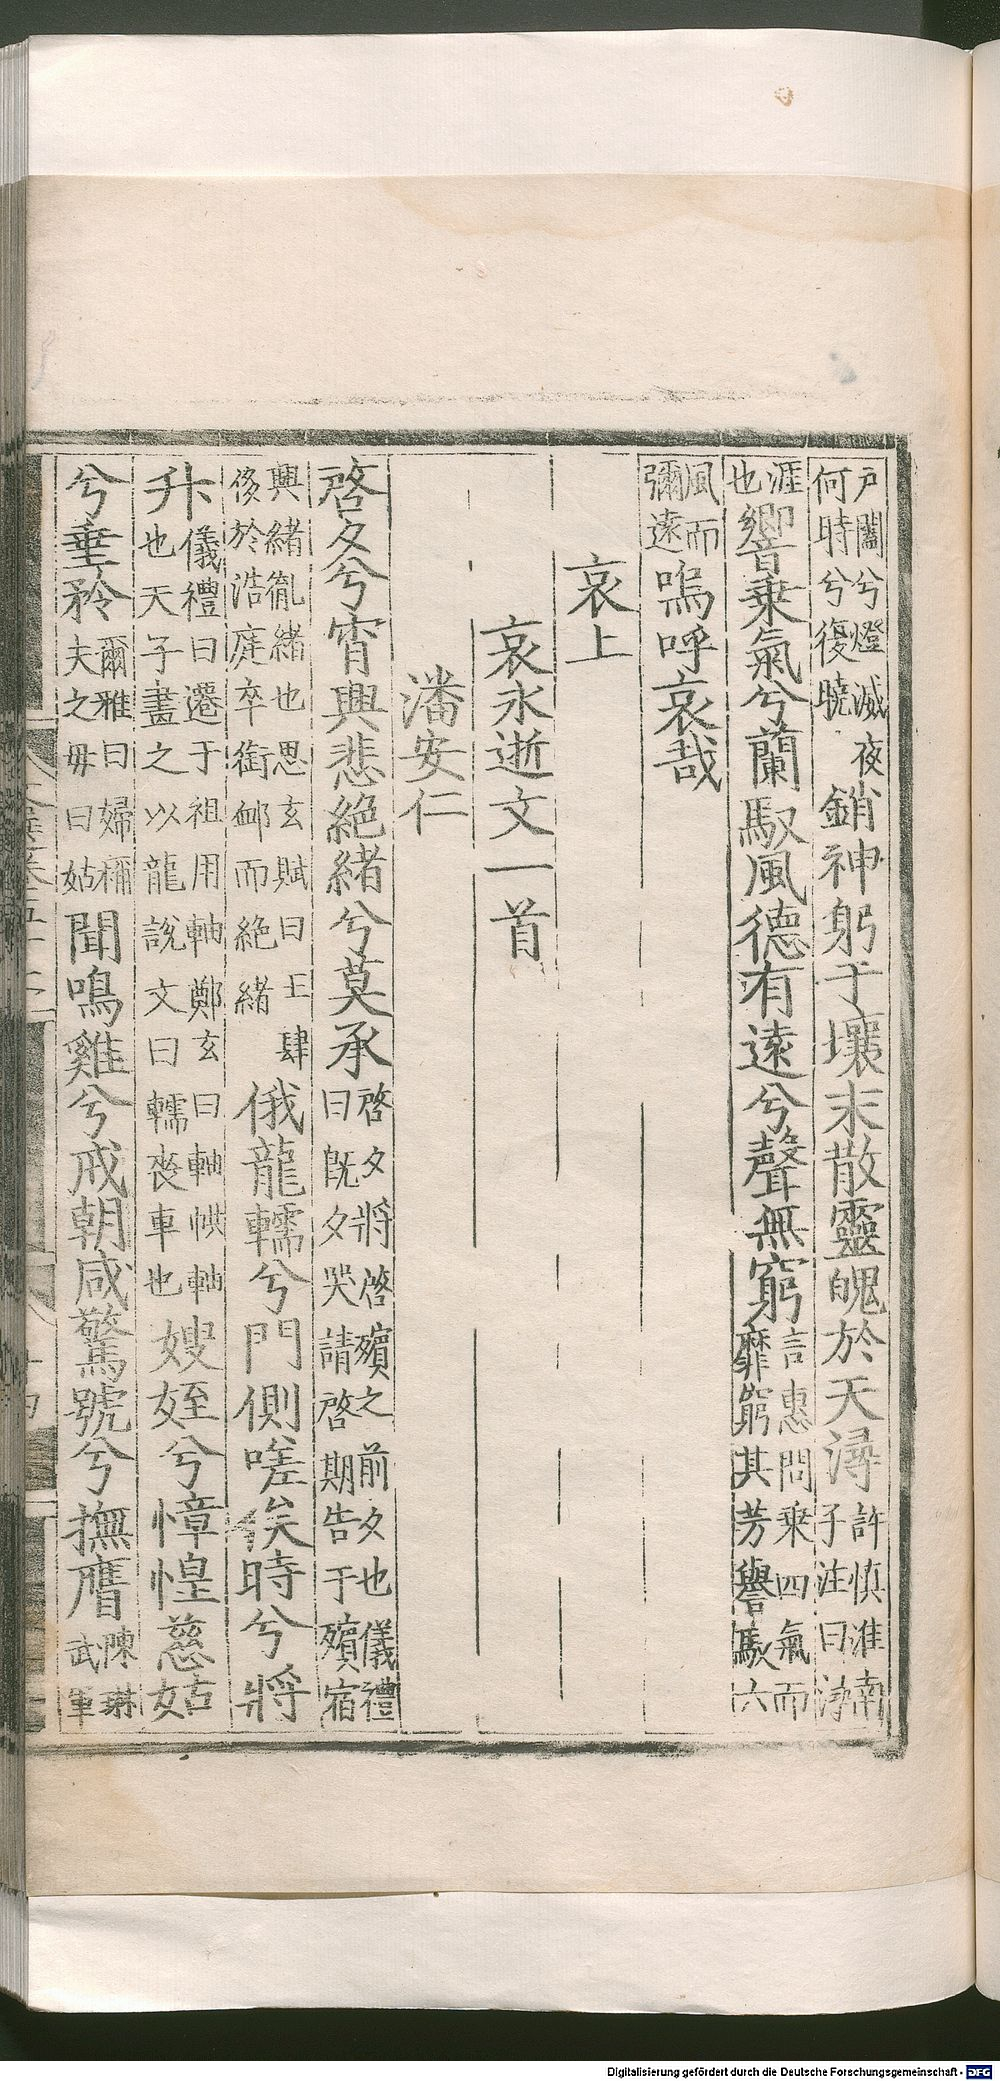 戶闔兮燈滅夜何時兮復曉銷神躬于壤末散靈魄於天潯許慎淮南子注曰潯
涯也響乘氣兮蘭馭風德有遠兮聲無窮言惠問乘四氣而靡窮其芳譽馭六
風而彌遠嗚呼哀哉
哀上
哀永逝文一首
潘安仁
啓夕兮宵興悲絶緒兮莫承啓夕將啓殯之前夕也儀禮曰旣夕哭請啓期告于殯宿
興緒胤緒也思玄賦曰王肆侈於浩庭卒銜卹而絶緒俄龍轜兮門側嗟俟時兮將
升儀禮曰遷于祖用軸鄭玄曰軸輁軸也天子畫之以龍說文曰轜喪車也嫂姪兮慞惶慈姑
兮垂矜爾雅曰婦稱夫之母曰姑聞鳴雞兮戒朝咸驚號兮撫膺陳琳武軍
Digitalisierung gefördert durch die Deutsche Forschungsgemeinschaft - DFG